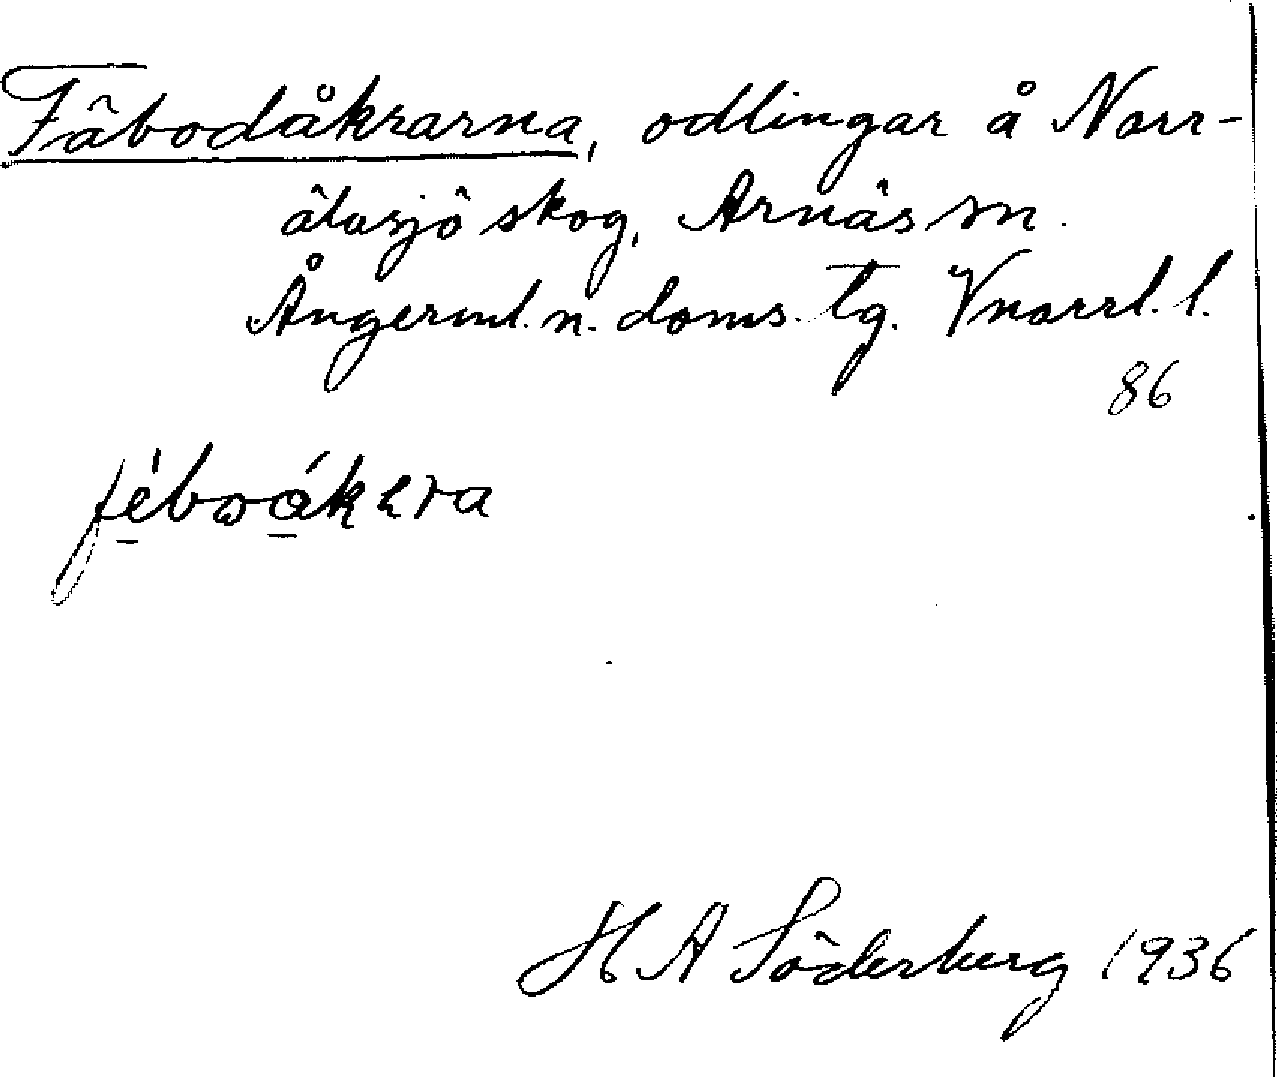 Fäbodåkrarna, odlingar å Norr-
älvsjö skog, Arnäs sn.
Ångerml. n. doms. tg. Vnorrl. l.
86
H A Söderberg 1936